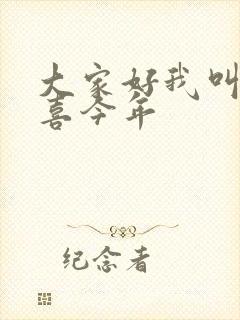 大家好我叫
喜今年
纪念者